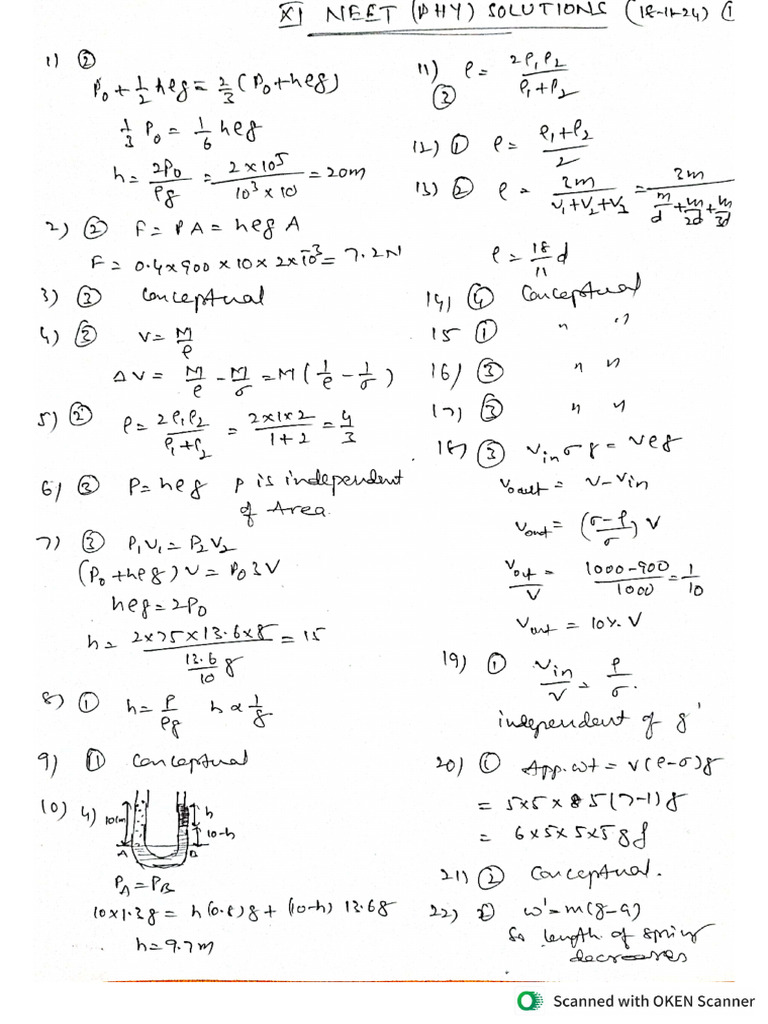 XI NEET (PHY) SOLUTIONS (18-11-24) ①
1) ②
P₀ + 1/2 hρg = 2/3 (P₀ + hρg)
1/3 P₀ = 1/6 hρg
h = 2P₀/ρg = 2 × 10⁵/10³ × 10 = 20m
2) ② F = PA = hρg A
F = 0.4 × 900 × 10 × 2 × 10⁻³ = 7.2N
3) ③ Conceptual
4) ③ V = M/ρ
ΔV = M/ρ - M/σ = M(1/ρ - 1/σ)
5) ② ρ = 2ρ₁ρ₂/ρ₁+ρ₂ = 2×1×2/1+2 = 4/3
6) ③ P = hρg P is independent
of Area.
7) ③ P₁V₁ = P₂V₂
(P₀ + hρg) V = P₀ 3V
hρg = 2P₀
h = 2×75×13.6×g / 13.6/10 g = 15
8) ① h = P/ρg h ∝ 1/g
9) ① Conceptual
10) 4) 10cm h 10-h A B
P_A = P_B
10×1.3g = h(0.8)g + (10-h) 13.6g
h = 9.7m
11) ρ = 2ρ₁ρ₂/ρ₁+ρ₂
③
12) ① ρ = ρ₁+ρ₂/2
13) ② ρ = 3m/V₁+V₂+V₃ = 3m / m/d + m/2d + m/3d
ρ = 18/11 d
14) ④ Conceptual
15 ① " "
16) ③ " "
17) ③ " "
18) ③ V_in σg = Vρg
V_out = V - V_in
V_out = (σ-ρ/σ) V
V_out/V = 1000-900/1000 = 1/10
V_out = 10% V
19) ① V_in/V = ρ/σ.
independent of g'
20) ① App.wt = V(ρ-σ)g
= 5×5×5(7-1)g
= 6×5×5×5gf
21) ② Conceptual.
22) ② W' = m(g-a)
So length of spring
decreases
Scanned with OKEN Scanner